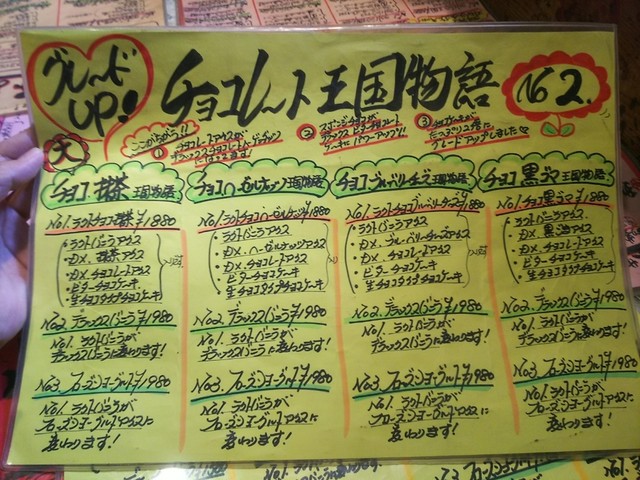 グレード UP!
チョコレート王国物語
No 2.
大
ここがちがう!!
① チョコレートアイスが
デラックスチョコレートに
② スポンジチョコが
デラックスビターチョコレート
ケーキにパワーアップ!!
③
グレードアップしました
チョコ抹茶王国物語
No1. ラクトチョコ抹茶 ¥1980
・ラクトバニラアイス
・DX. 抹茶アイス
・DX. チョコレートアイス
・ビターチョコケーキ
・生チョコタイプチョコケーキ
No2. デラックスバニラ ¥1980
No1. ラクトバニラが
デラックスバニラに変わります!
No3. フローズンヨーグルト ¥1980
No1. ラクトバニラが
フローズンヨーグルトアイスに
変わります!
チョコヘーゼルナッツ王国物語
No1. ラクトチョコヘーゼルナッツ ¥1980
・ラクトバニラアイス
・DX. ヘーゼルナッツアイス
・DX. チョコレートアイス
・ビターチョコケーキ
・生チョコタイプチョコケーキ
No2. デラックスバニラ ¥1980
No1. ラクトバニラが
デラックスバニラに変わります!
No3. フローズンヨーグルト ¥1980
No1. ラクトバニラが
フローズンヨーグルトアイスに
変わります!
チョコブルーベリーチーズ王国物語
No1. ラクトチョコブルーベリーチーズ ¥1980
・ラクトバニラアイス
・DX. ブルーベリーチーズアイス
・DX. チョコレートアイス
・ビターチョコケーキ
・生チョコタイプチョコケーキ
No2. デラックスバニラ ¥1980
No1. ラクトバニラが
デラックスバニラに変わります!
No3. フローズンヨーグルト ¥1980
No1. ラクトバニラが
フローズンヨーグルトアイスに
変わります!
チョコ黒ゴマ王国物語
No1. チョコ黒ゴマ ¥1980
・ラクトバニラアイス
・DX. 黒ゴマアイス
・DX. チョコレートアイス
・ビターチョコケーキ
・生チョコタイプチョコケーキ
No2. デラックスバニラ ¥1980
No1. ラクトバニラが
デラックスバニラに変わります!
No3. フローズンヨーグルト ¥1980
No1. ラクトバニラが
フローズンヨーグルトアイスに
変わります!